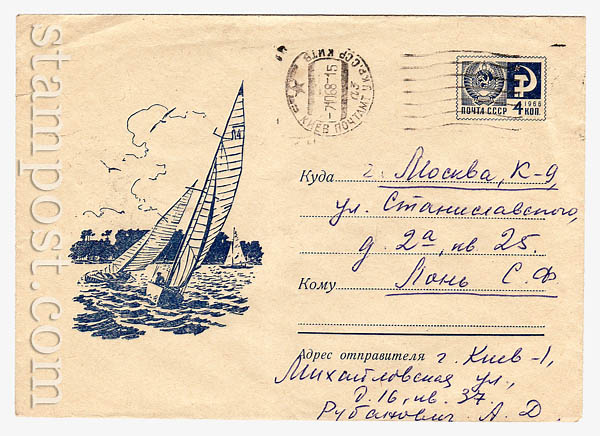 stampost.com
КИЕВ ПОЧТАМТ
-7 10 68-15
ПОЧТА СССР
1966
4 КОП.
14
Куда г. Москва, К-9,
ул. Станиславского,
д. 2а, кв. 25.
Кому Лонь С. Ф
Адрес отправителя г. Киев-1,
Михайловская ул.,
д. 16, кв. 37.
Рубанович А. Д.